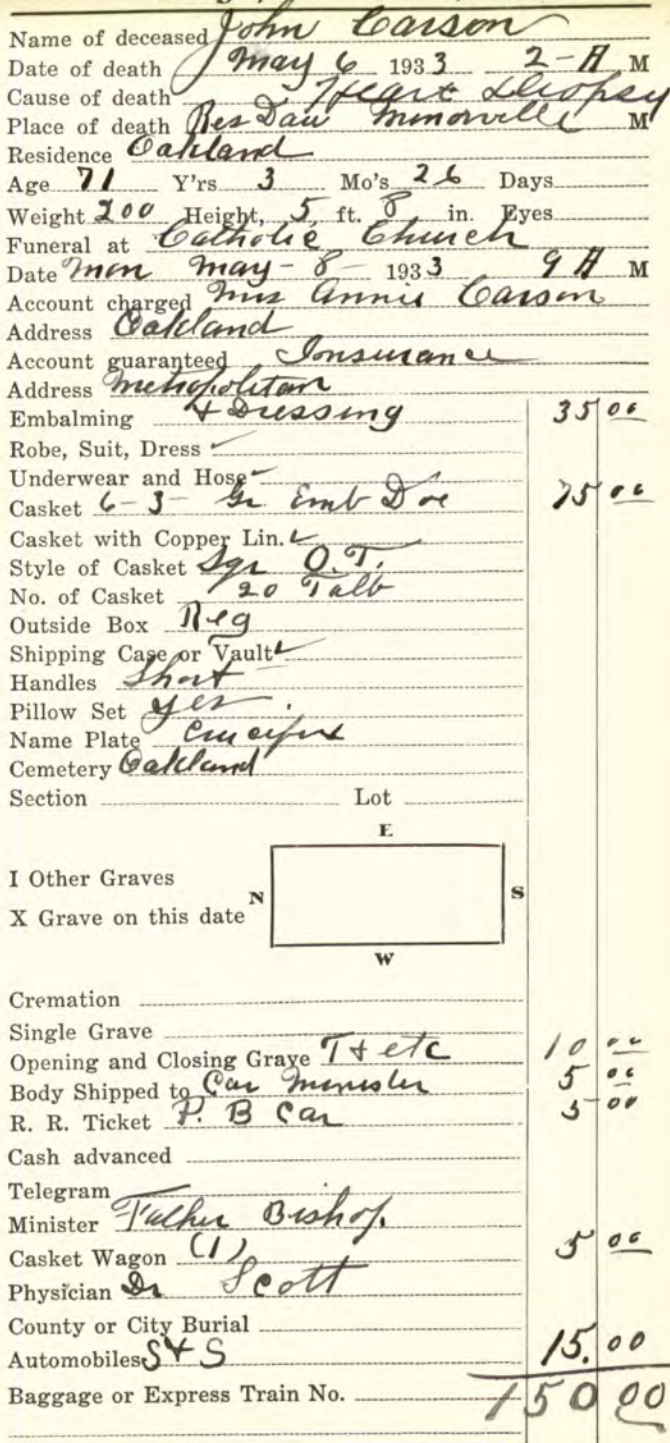 Name of deceased John Carson
Date of death May 6 1933 2-A M
Cause of death Heart Dropsy
Place of death Res Dau Minorville M
Residence Oakland
Age 71 Y'rs 3 Mo's 26 Days
Weight 200 Height, 5 ft. 8 in. Eyes
Funeral at Catholic Church
Date Mon May-8- 1933 9 A M
Account charged Mrs Annie Carson
Address Oakland
Account guaranteed Insurance
Address Metropolitan
Embalming + Dressing 35 00
Robe, Suit, Dress
Underwear and Hose
Casket 6-3- Gr Emb Doe 75 00
Casket with Copper Lin.
Style of Casket Sqr O.T.
No. of Casket 20 Talb
Outside Box Reg
Shipping Case or Vault
Handles Short
Pillow Set yes.
Name Plate Crucifix
Cemetery Oakland
Section Lot
E
I Other Graves
N S
X Grave on this date
W
Cremation
Single Grave
Opening and Closing Grave T+etc 10 00
Body Shipped to Car Minister 5 00
R. R. Ticket P. B Car 5 00
Cash advanced
Telegram
Minister Father Bishop.
Casket Wagon (1) 5 00
Physician Dr Scott
County or City Burial
Automobiles S+S 15.00
Baggage or Express Train No. 150 00